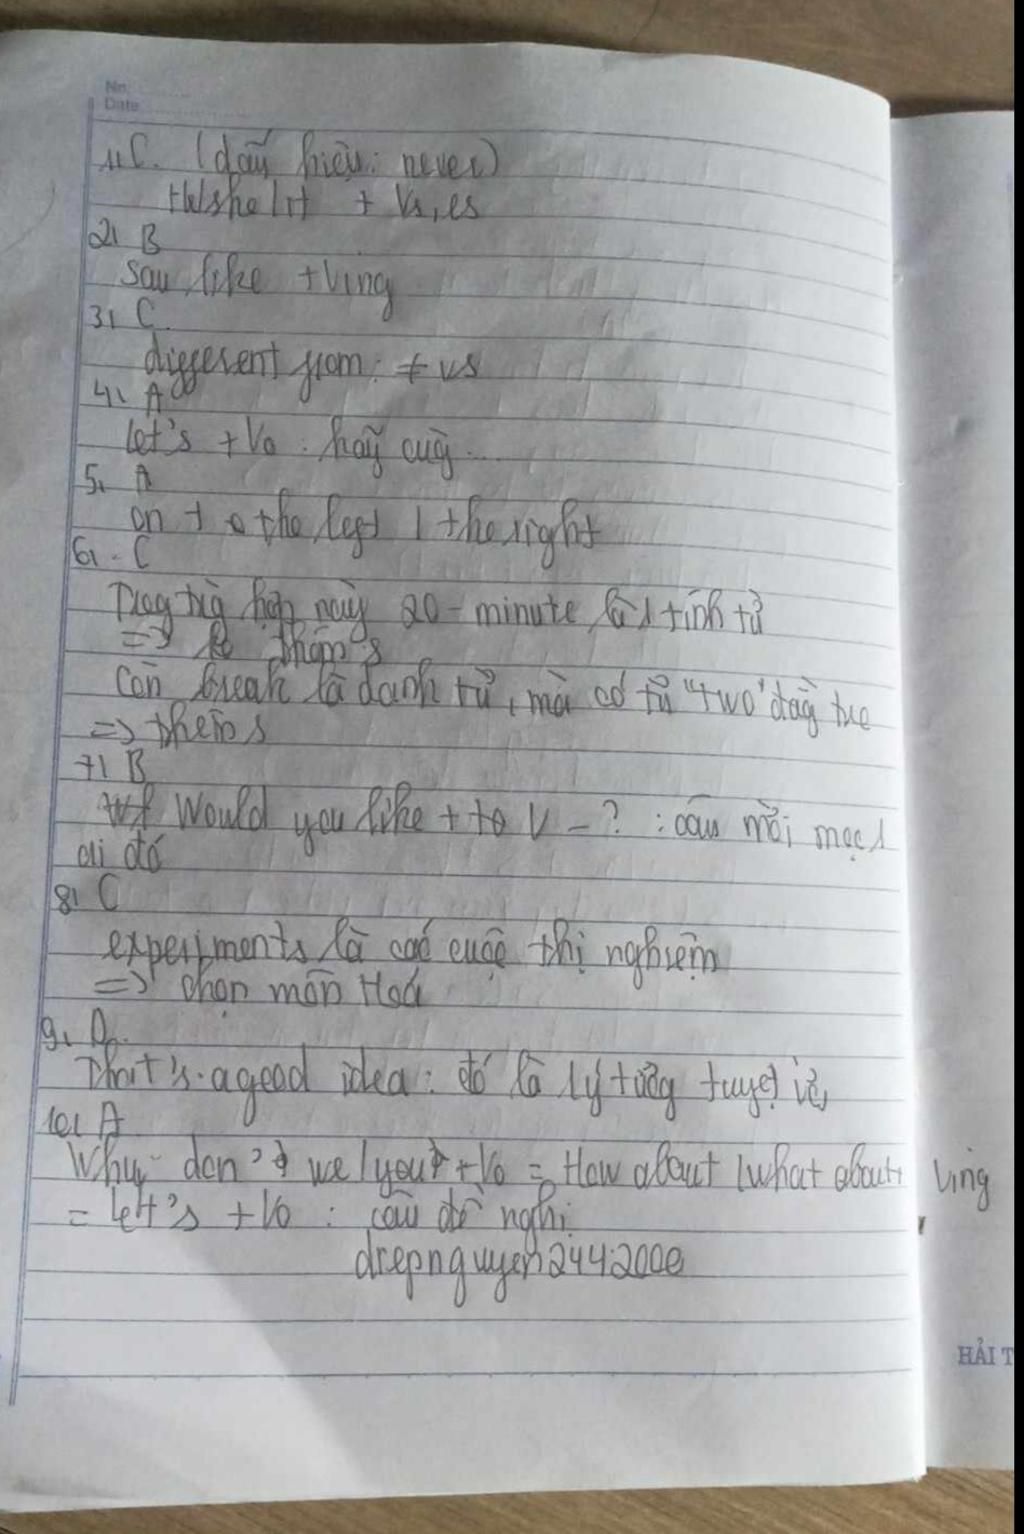 No.
Date
1, C. (dấu hiệu: never)
He/she/it + Vs,es
2, B
sau like + Ving
3, C.
different from: ≠ vs
4, A
let's + Vo: hãy cùg...
5, A
on + the left / the right
6, C
Trog trg hợp này 20-minute là 1 tính từ
=> ko thêm s
Còn break là danh từ, mà có từ "two" đằg trc
=> thêm s
7, B
Would you like + to V - ? : câu mời mọc 1
ai đó
8, C
experiments là các cuộc thí nghiệm
=> chọn môn Hoá
9, D.
That's a good idea: đó là 1 ý tưởg tuyệt vời
10, A
Why don't we/you + Vo = How about / what about + Ving
= let's + Vo : câu đề nghị
diepnguyen2442000
HẢI T